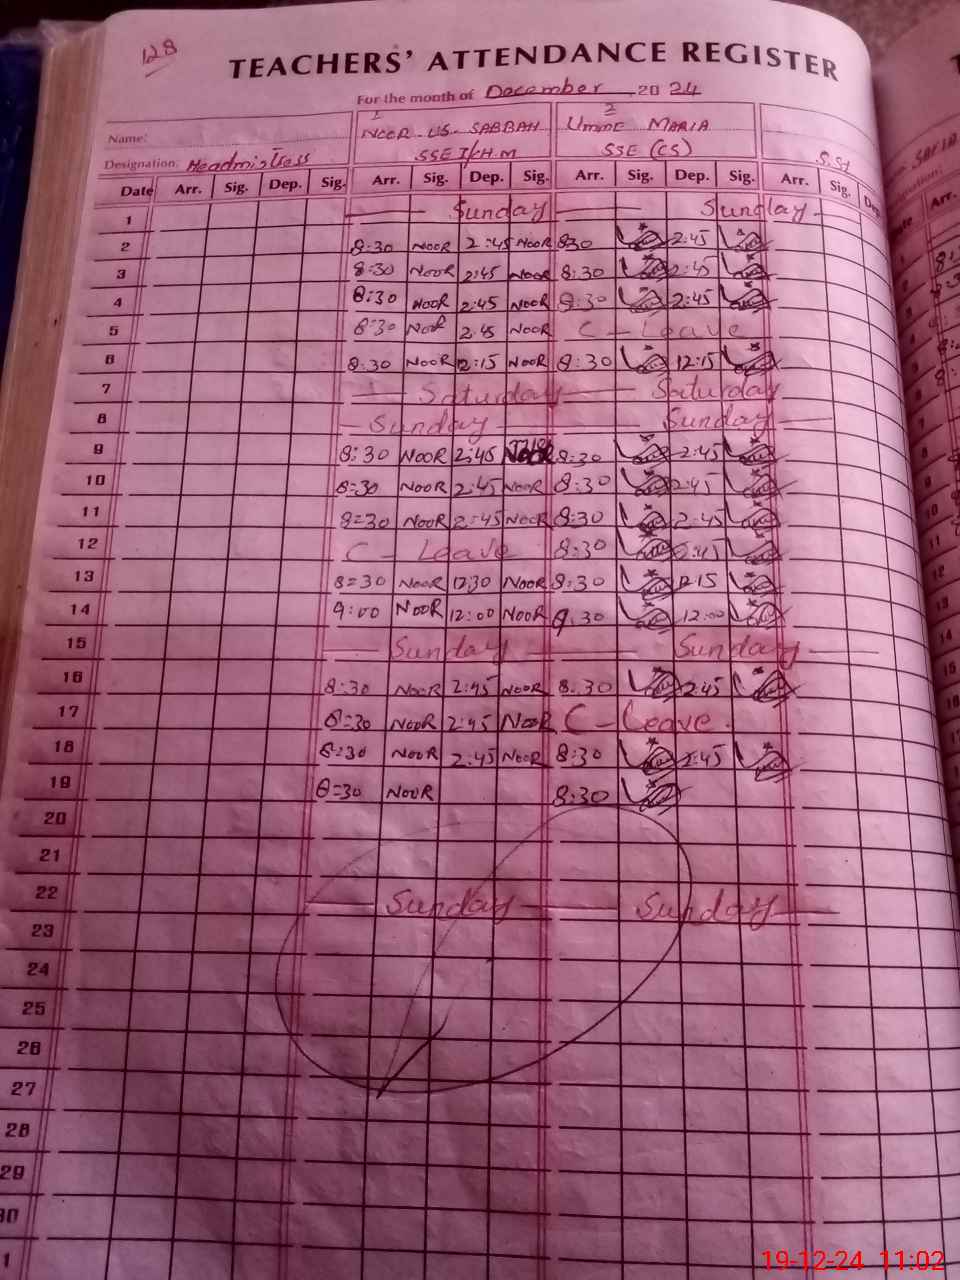 128
TEACHERS' ATTENDANCE REGISTER
For the month of December 20 24
1 2
Name: NOOR-US-SABBAH Umme MARIA
Designation: Headmistress SSE I/CH.M SSE (CS) S.St
Date Arr. Sig. Dep. Sig. Arr. Sig. Dep. Sig. Arr. Sig. Dep. Sig. Arr. Sig. Dep.
1 Sunday Sunday
2 8:30 NOOR 2:45 NOOR 8:30 2:45
3 8:30 NOOR 2:45 NOOR 8:30 2:45
4 8:30 NOOR 2:45 NOOR 8:30 2:45
5 8:30 NOOR 2:45 NOOR C-Leave
6 8:30 NOOR 12:15 NOOR 8:30 12:15
7 Saturday Saturday
8 Sunday Sunday
9 8:30 NOOR 2:45 NOOR 8:30 2:45
10 8=30 NOOR 2:45 NOOR 8:30 2:45
11 8=30 NOOR 2:45 NOOR 8:30 2:45
12 C-Leave 8:30 2:45
13 8=30 NOOR 12:30 NOOR 8:30 12:15
14 9:00 NOOR 12:00 NOOR 9.30 12:00
15 Sunday Sunday
16 8:30 NOOR 2:45 NOOR 8.30 2:45
17 8=30 NOOR 2:45 NOOR C-Leave.
18 8:30 NOOR 2:45 NOOR 8:30 2:45
19 8=30 NOOR 8:30
20
21
22 Sunday Sunday
23
24
25
26
27
28
29
30
1
19-12-24 11:02